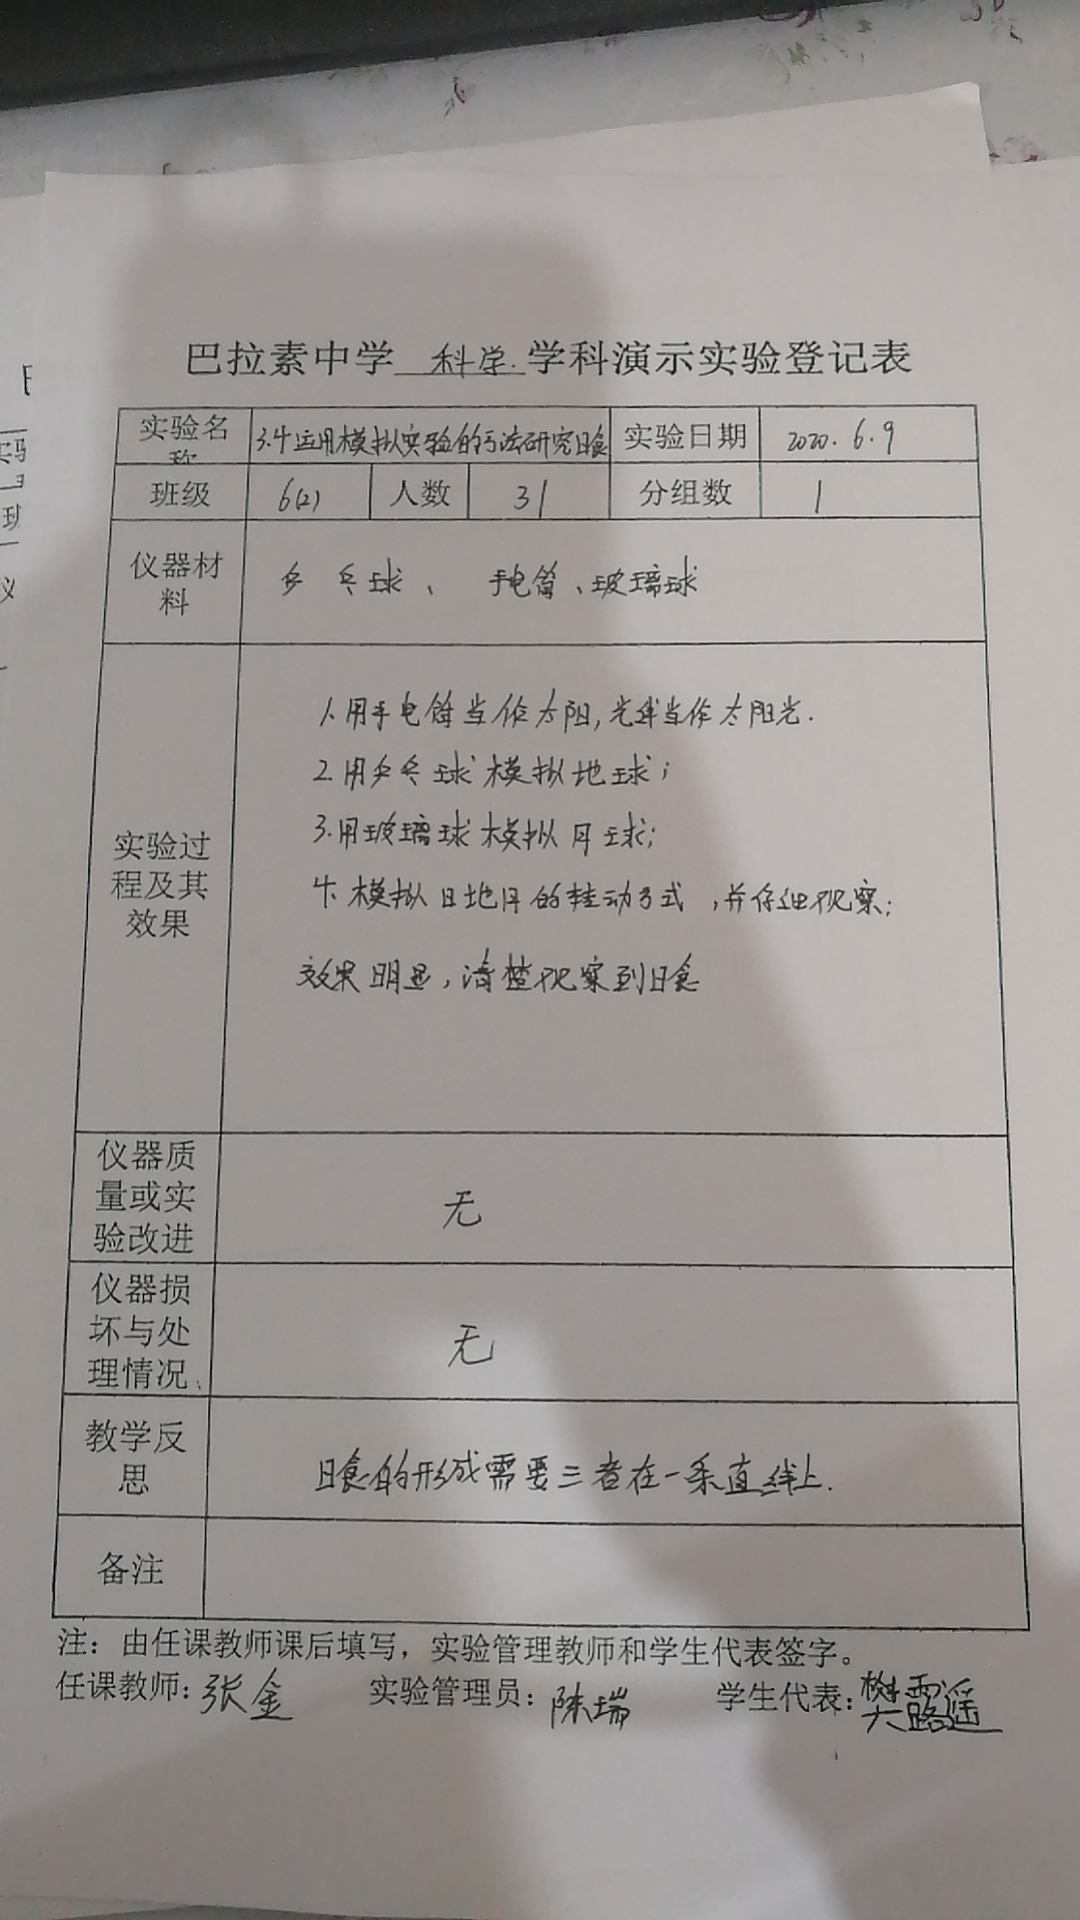 巴拉素中学 科学 学科演示实验登记表
实验名称 3.4运用模拟实验的方法研究日食 实验日期 2020.6.9
班级 6(2) 人数 31 分组数 1
仪器材料 乒乓球、手电筒、玻璃球
实验过程及其效果
1.用手电筒当作太阳,光线当作太阳光.
2.用乒乓球模拟地球;
3.用玻璃球模拟月球;
4.模拟日地月的转动方式,并仔细观察;
效果明显,清楚观察到日食
仪器质量或实验改进 无
仪器损坏与处理情况 无
教学反思 日食的形成需要三者在一条直线上.
备注
注：由任课教师课后填写，实验管理教师和学生代表签字。
任课教师：张金 实验管理员：陈瑞 学生代表：樊露遥